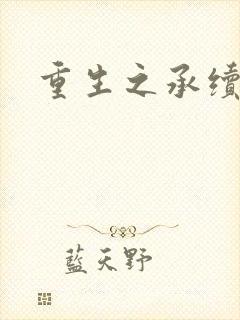 重生之承續
藍天野